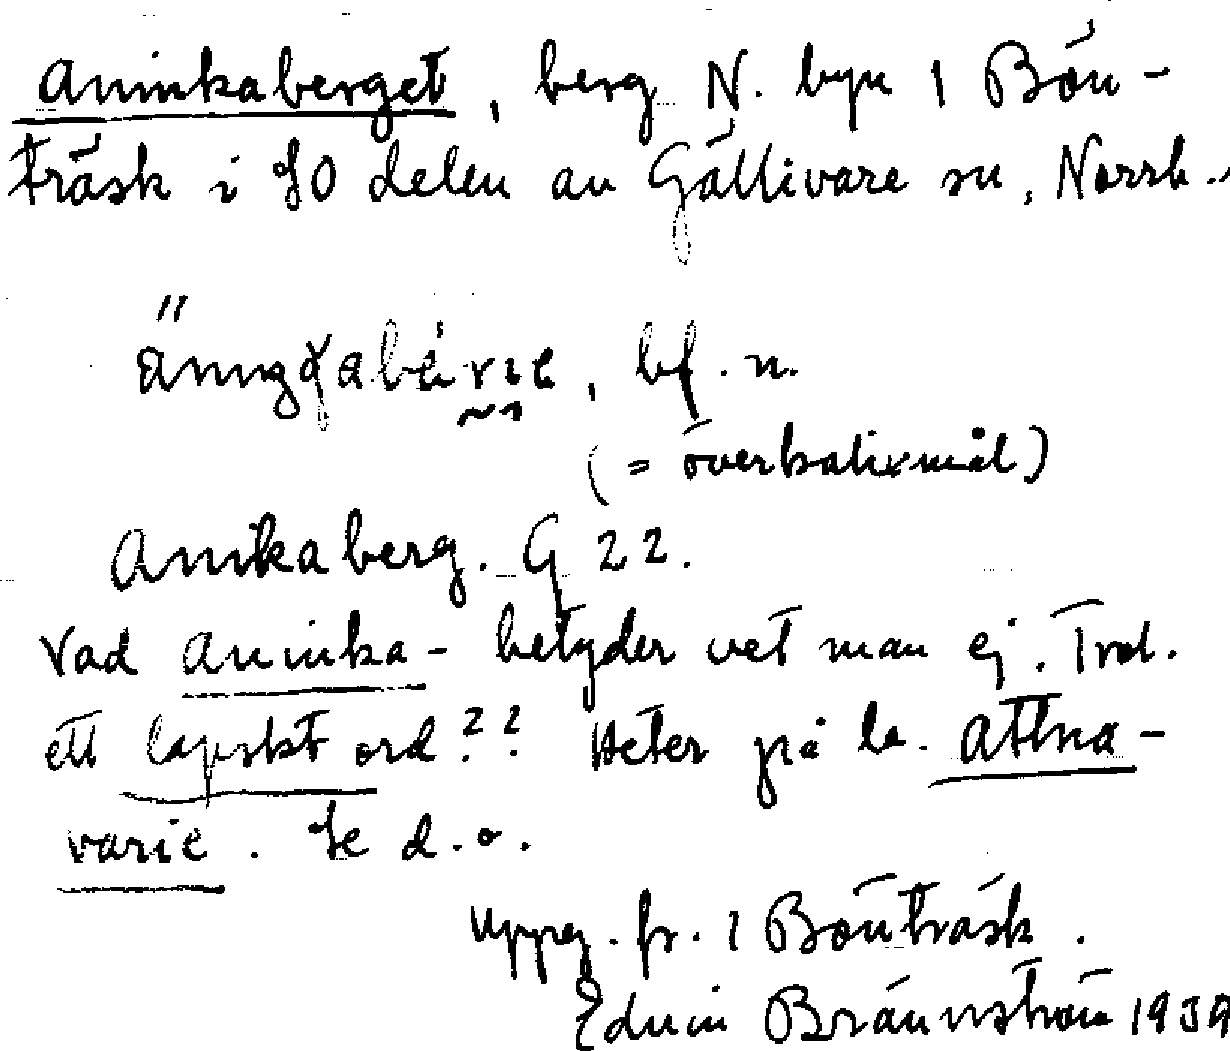 Annikaberget, berg N. byn 1 Bön-
träsk i SO delen av Gällivare sn, Norrb.
bf. n.
(= överkalixmål)
Annikaberg. G 22.
Vad Annika- betyder vet man ej. Trol.
ett lapskt ord?? Heter på la. Attna-
varie. Se d.o.
Uppg. fr. 1 Bönträsk.
Edvin Brännström 1939